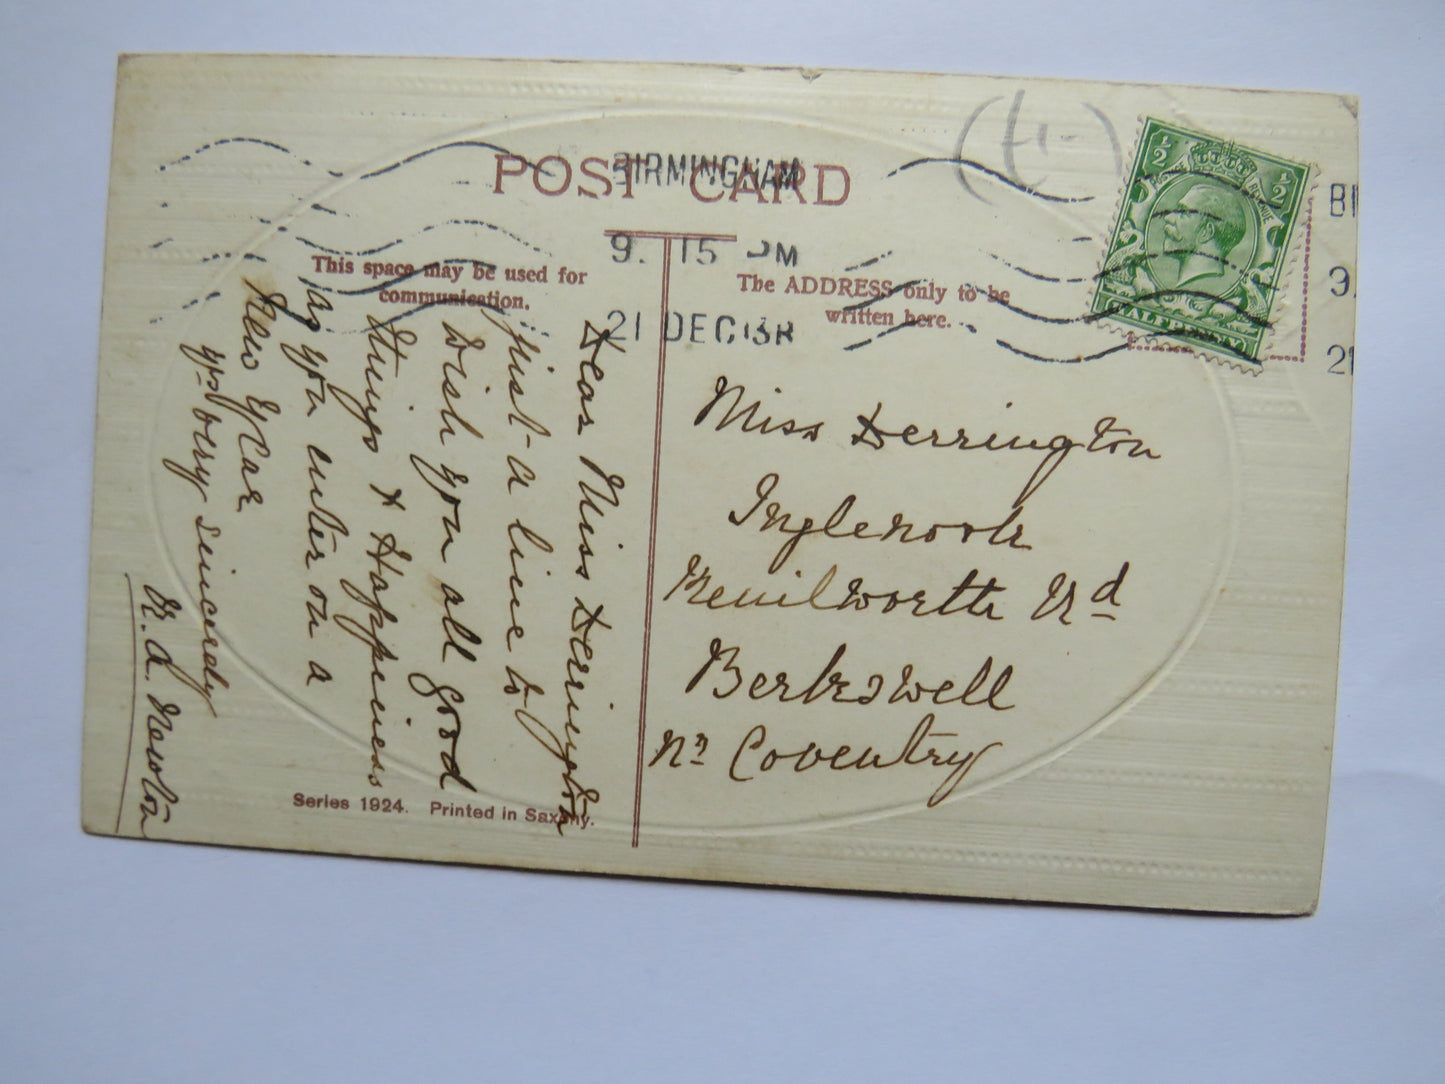 POST CARD
BIRMINGHAM
9. 15 PM
21 DEC 13
This space may be used for
communication.
The ADDRESS only to be
written here.
½ ½
HALFPENNY
BI
9.
21
Miss Derrington
Inglenook
Kenilworth Rd
Berkswell
Nr Coventry
Dear Miss Derrington
just a line to
wish you all good
things & Happiness
as you enter on a
New Year
yrs very sincerely
A. Newton
Series 1924. Printed in Saxony.